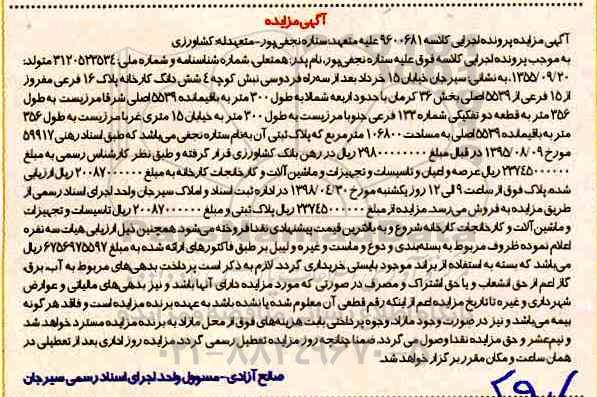 آگهی مزایده
آگهی مزایده پرونده اجرایی کلاسه ۹۶۰۰۶۸۱ علیه متعهد: ستاره نجفی‌پور-متعهدله: کشاورزی
به موجب پرونده اجرایی کلاسه فوق علیه ستاره نجفی‌پور، نام پدر: همتعلی، شماره شناسنامه و شماره ملی: ۳۱۲۰۵۲۳۵۳۴، متولد:
۱۳۵۵/۰۹/۲۰، به نشانی: سیرجان خیابان ۱۵ خرداد بعد از سه‌راه فردوسی نبش کوچه ٤ شش دانگ کارخانه پلاک ۱۶ فرعی مفروز
از ۱۵ فرعی از ۵۵۳۹ اصلی بخش ۳۶ کرمان با حدود اربعه شمالا به طول ۳۰۰ متر به باقیمانده ۵۵۳۹ اصلی شرقا مرزیست به طول
۳۵۶ متر به قطعه دو تفکیکی شماره ۱۳۳ فرعی جنوبا مرزیست به طول ۳۰۰ متر به خیابان ۱۵ متری غربا مرزیست به طول ۳۵۶
متر به باقیمانده ۵۵۳۹ اصلی به مساحت ۱۰۶۸۰۰ متر مربع که پلاک ثبتی آن به نام ستاره نجفی می‌باشد که طبق اسناد رهنی ۵۹۹۱۷
مورخ ۱۳۹۵/۰۸/۰۹ در قبال مبلغ ۲۹۸۰۰۰۰۰۰۰۰ ریال در رهن بانک کشاورزی قرار گرفته و طبق نظر کارشناس رسمی به مبلغ
ریال عرصه و اعیان و تاسیسات و تجهیزات و ماشین‌آلات و کارخانجات کارخانه به مبلغ ریال ارزیابی
شده. پلاک فوق از ساعت ۹ الی ۱۲ روز یکشنبه مورخ ۱۳۹۸/۰۴/۳۰ در اداره ثبت اسناد و املاک سیرجان واحد اجرای اسناد رسمی از
طریق مزایده به فروش می‌رسد. مزایده از مبلغ ریال پلاک ثبتی و مبلغ ریال تاسیسات و تجهیزات
و ماشین‌آلات و کارخانجات کارخانه شروع و به بالاترین قیمت پیشنهادی نقدا فروخته می‌شود. همچنین ذیل ارزیابی هیات سه نفره
اعلام نموده ظروف مربوط به بسته‌بندی و دوغ و ماست و غیره و لیبل بر طبق فاکتورهای ارائه شده به مبلغ ۶۷۵۶۹۷۵۵۹۷ ریال
می‌باشد که بسته به استفاده از برند موجود بایستی خریداری گردد. لازم به ذکر است پرداخت بدهی‌های مربوط به آب، برق،
گاز اعم از حق انشعاب و یا حق اشتراک و مصرف در صورتی که مورد مزایده دارای آنها باشد و نیز بدهی‌های مالیاتی و عوارض
شهرداری و غیره تا تاریخ مزایده اعم از اینکه رقم قطعی آن معلوم شده یا نشده باشد به عهده برنده مزایده است و فاقد هرگونه
بیمه می‌باشد و نیز در صورت وجود مازاد وجوه پرداختی بابت هزینه‌های فوق از محل مازاد به برنده مزایده مسترد خواهد شد
و نیم‌عشر و حق مزایده نقدا وصول می‌گردد. ضمنا چنانچه روز مزایده تعطیل رسمی گردد، مزایده روز اداری بعد از تعطیلی در
همان ساعت و مکان مقرر برگزار خواهد شد.
صالح آزادی-مسوول واحد اجرای اسناد رسمی سیرجان